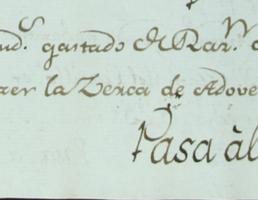 ud.s gastado de Rar.n
zer la Zerca de Adove
Pasa àl